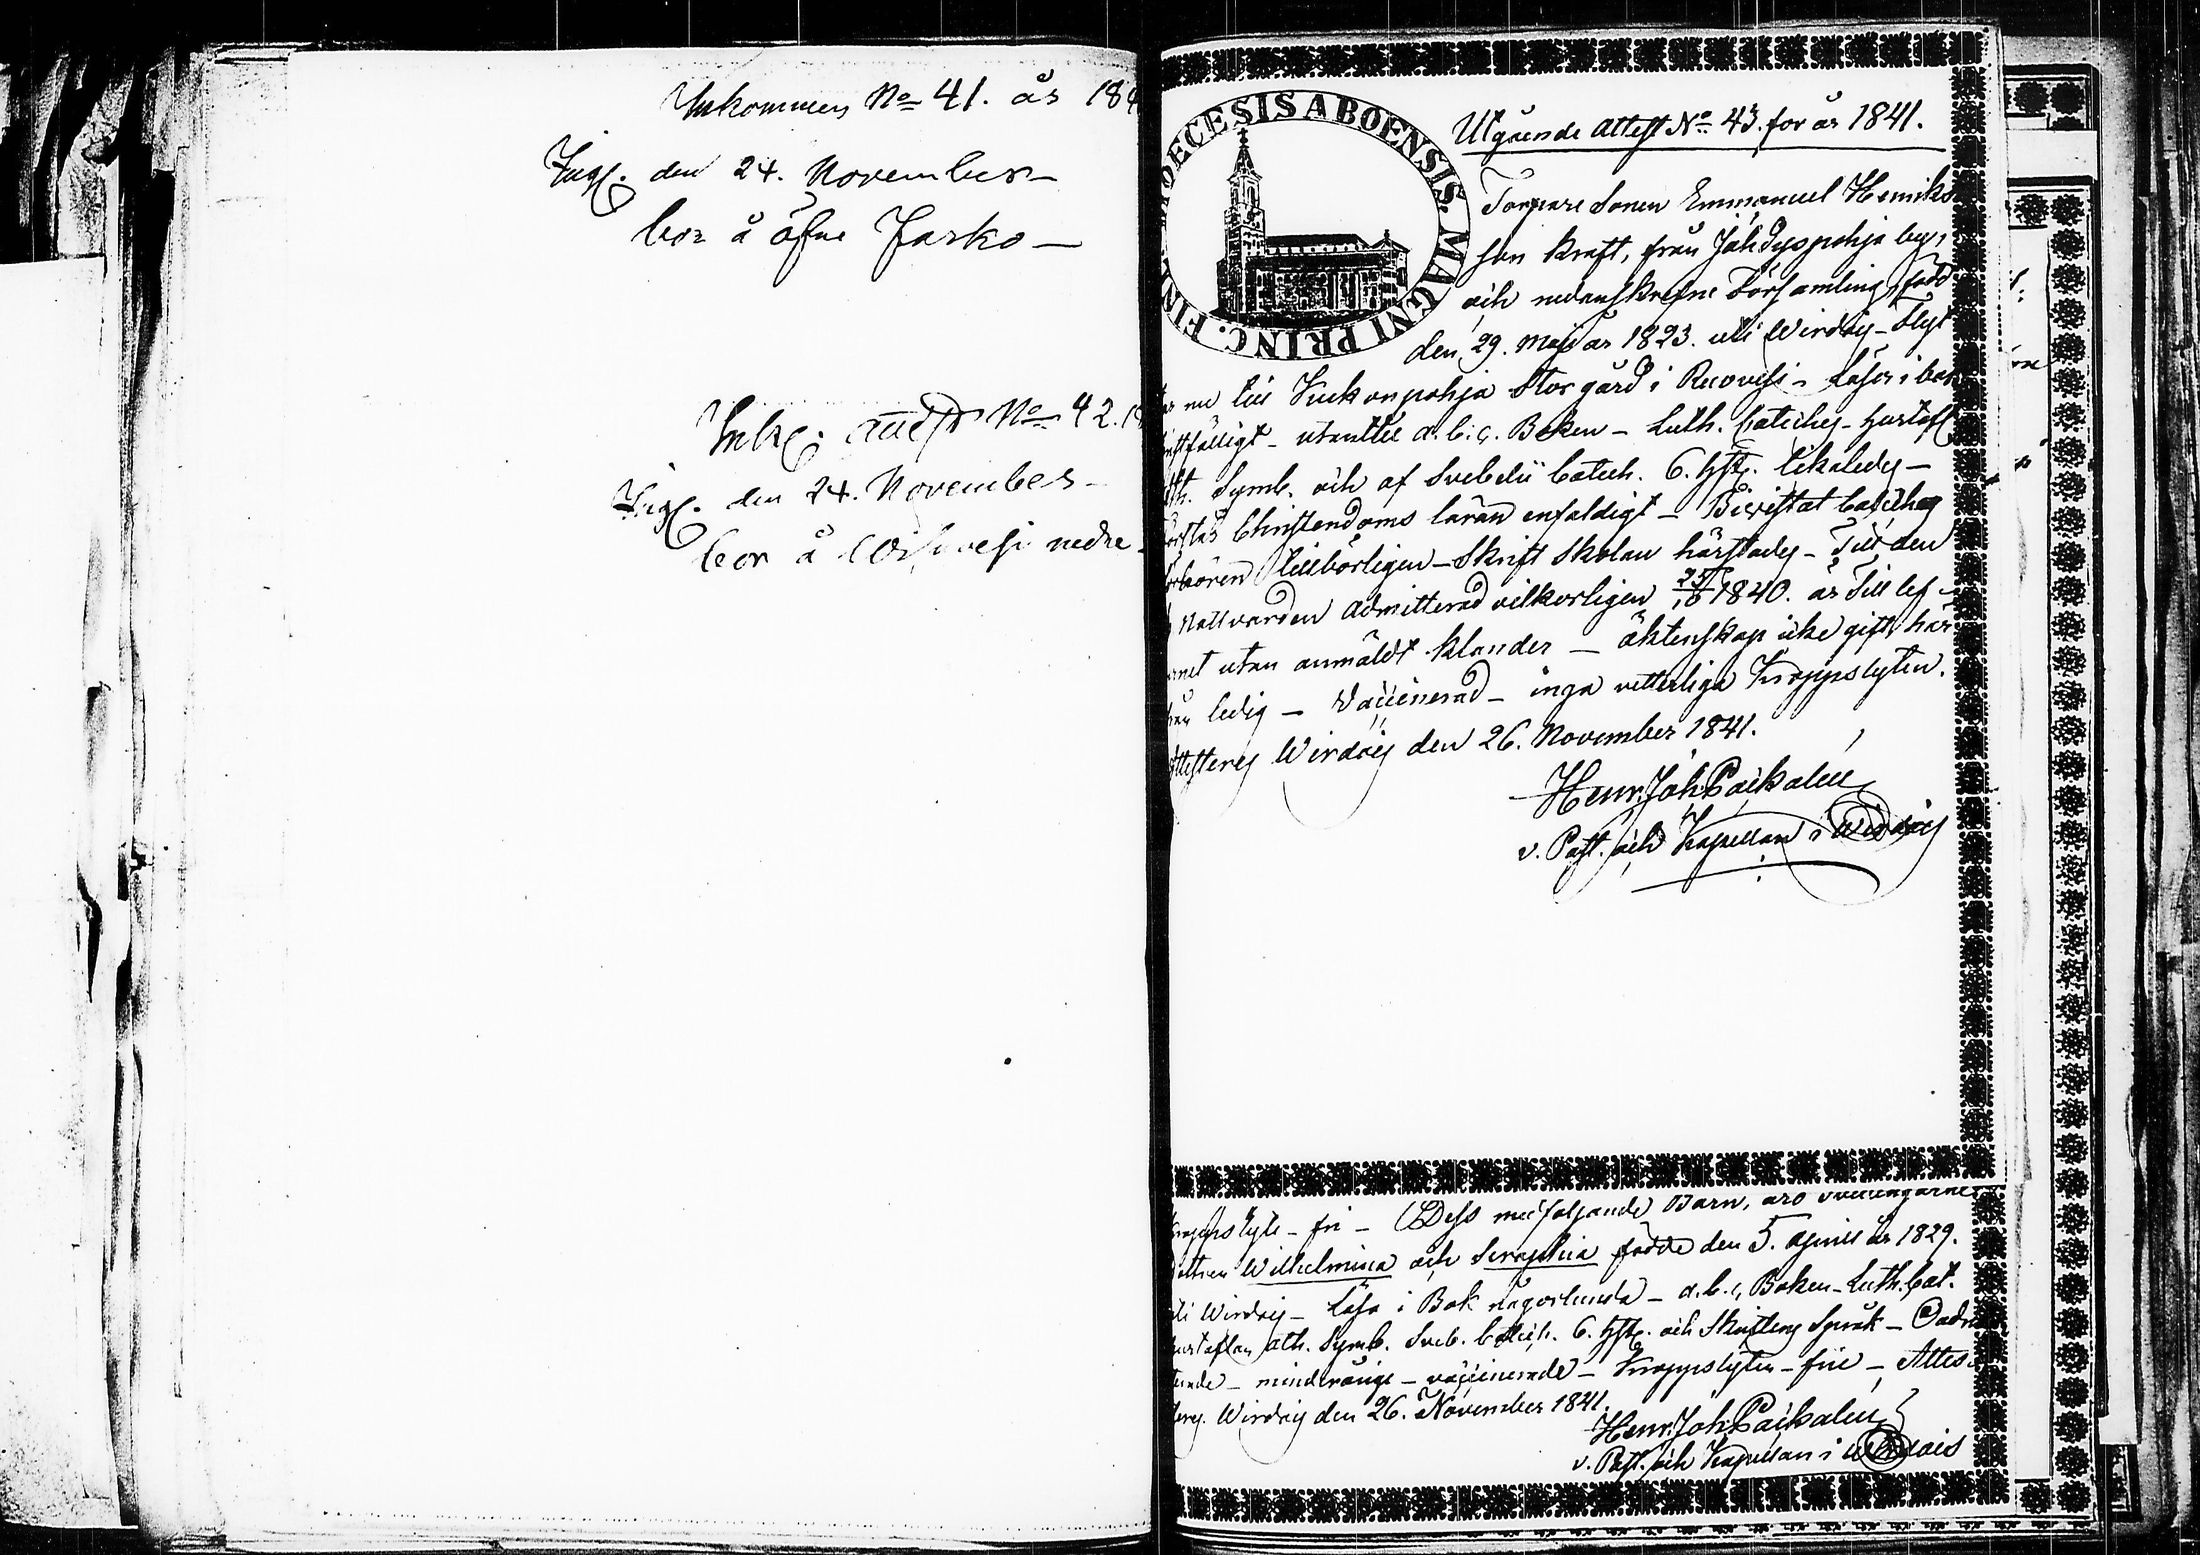 Inkommen No 41. år 184
Ingf. den 24. November
bor å öfne Jarko
Ink. attest No 42. 18
Ingf. den 24. November
bor å nedre
FIN DIOECESIS ABOENSIS. MAGNI PRINC.
Utgående Attest No 43. för år 1841.
Torpare Sonen Emmanuel Henriks
son Kraft, från Jähdyspohja by,
och nedanskrefne Församling, född
den 29. Maji år 1823. uti Wirdois - Flyt
nu till Kuckonpohja Storgård i Ruovesi - Läser i bok
utantill a.b.c. Boken - Luth. Cateches. Hustafl
ath. Symb. och af Svebelii Catech. 6. hst. likaledes -
förstår Christendoms läran enfaldigt - Bivistat Cateches
förhören tillbörligen - Skrift Skolan härstädes - Till den
H. Nattvarden admitterad vilkorligen 25/10 1840. är Till lef
vernet utan anmäldt klander - äktenskap icke gift, här
från ledig - Vaccinerad - inga vetterliga Kroppslyten.
Attesteras Wirdois den 26. November 1841.
Henr. Joh. Paikalen
v. Past. och Kapellan i Wirdois
Kroppslyte - fri - Dess medföljande Barn, äro Tvillingarne
Wilhelmina och Seraphia födde den 5. April år 1829.
uti Wirdois - Läsa i Bok någorlunda - a.b.c. Boken - Luth. Cat.
Hustaflan ath. Symb. Sveb. Catech. 6. hst. och Skriftens Språk -
minderårige - vaccinerade - Kroppslyten - frie - Attes
teras. Wirdois den 26. November 1841.
Henr. Joh. Paikalen
v. Past. och Kapellan i Wirdois